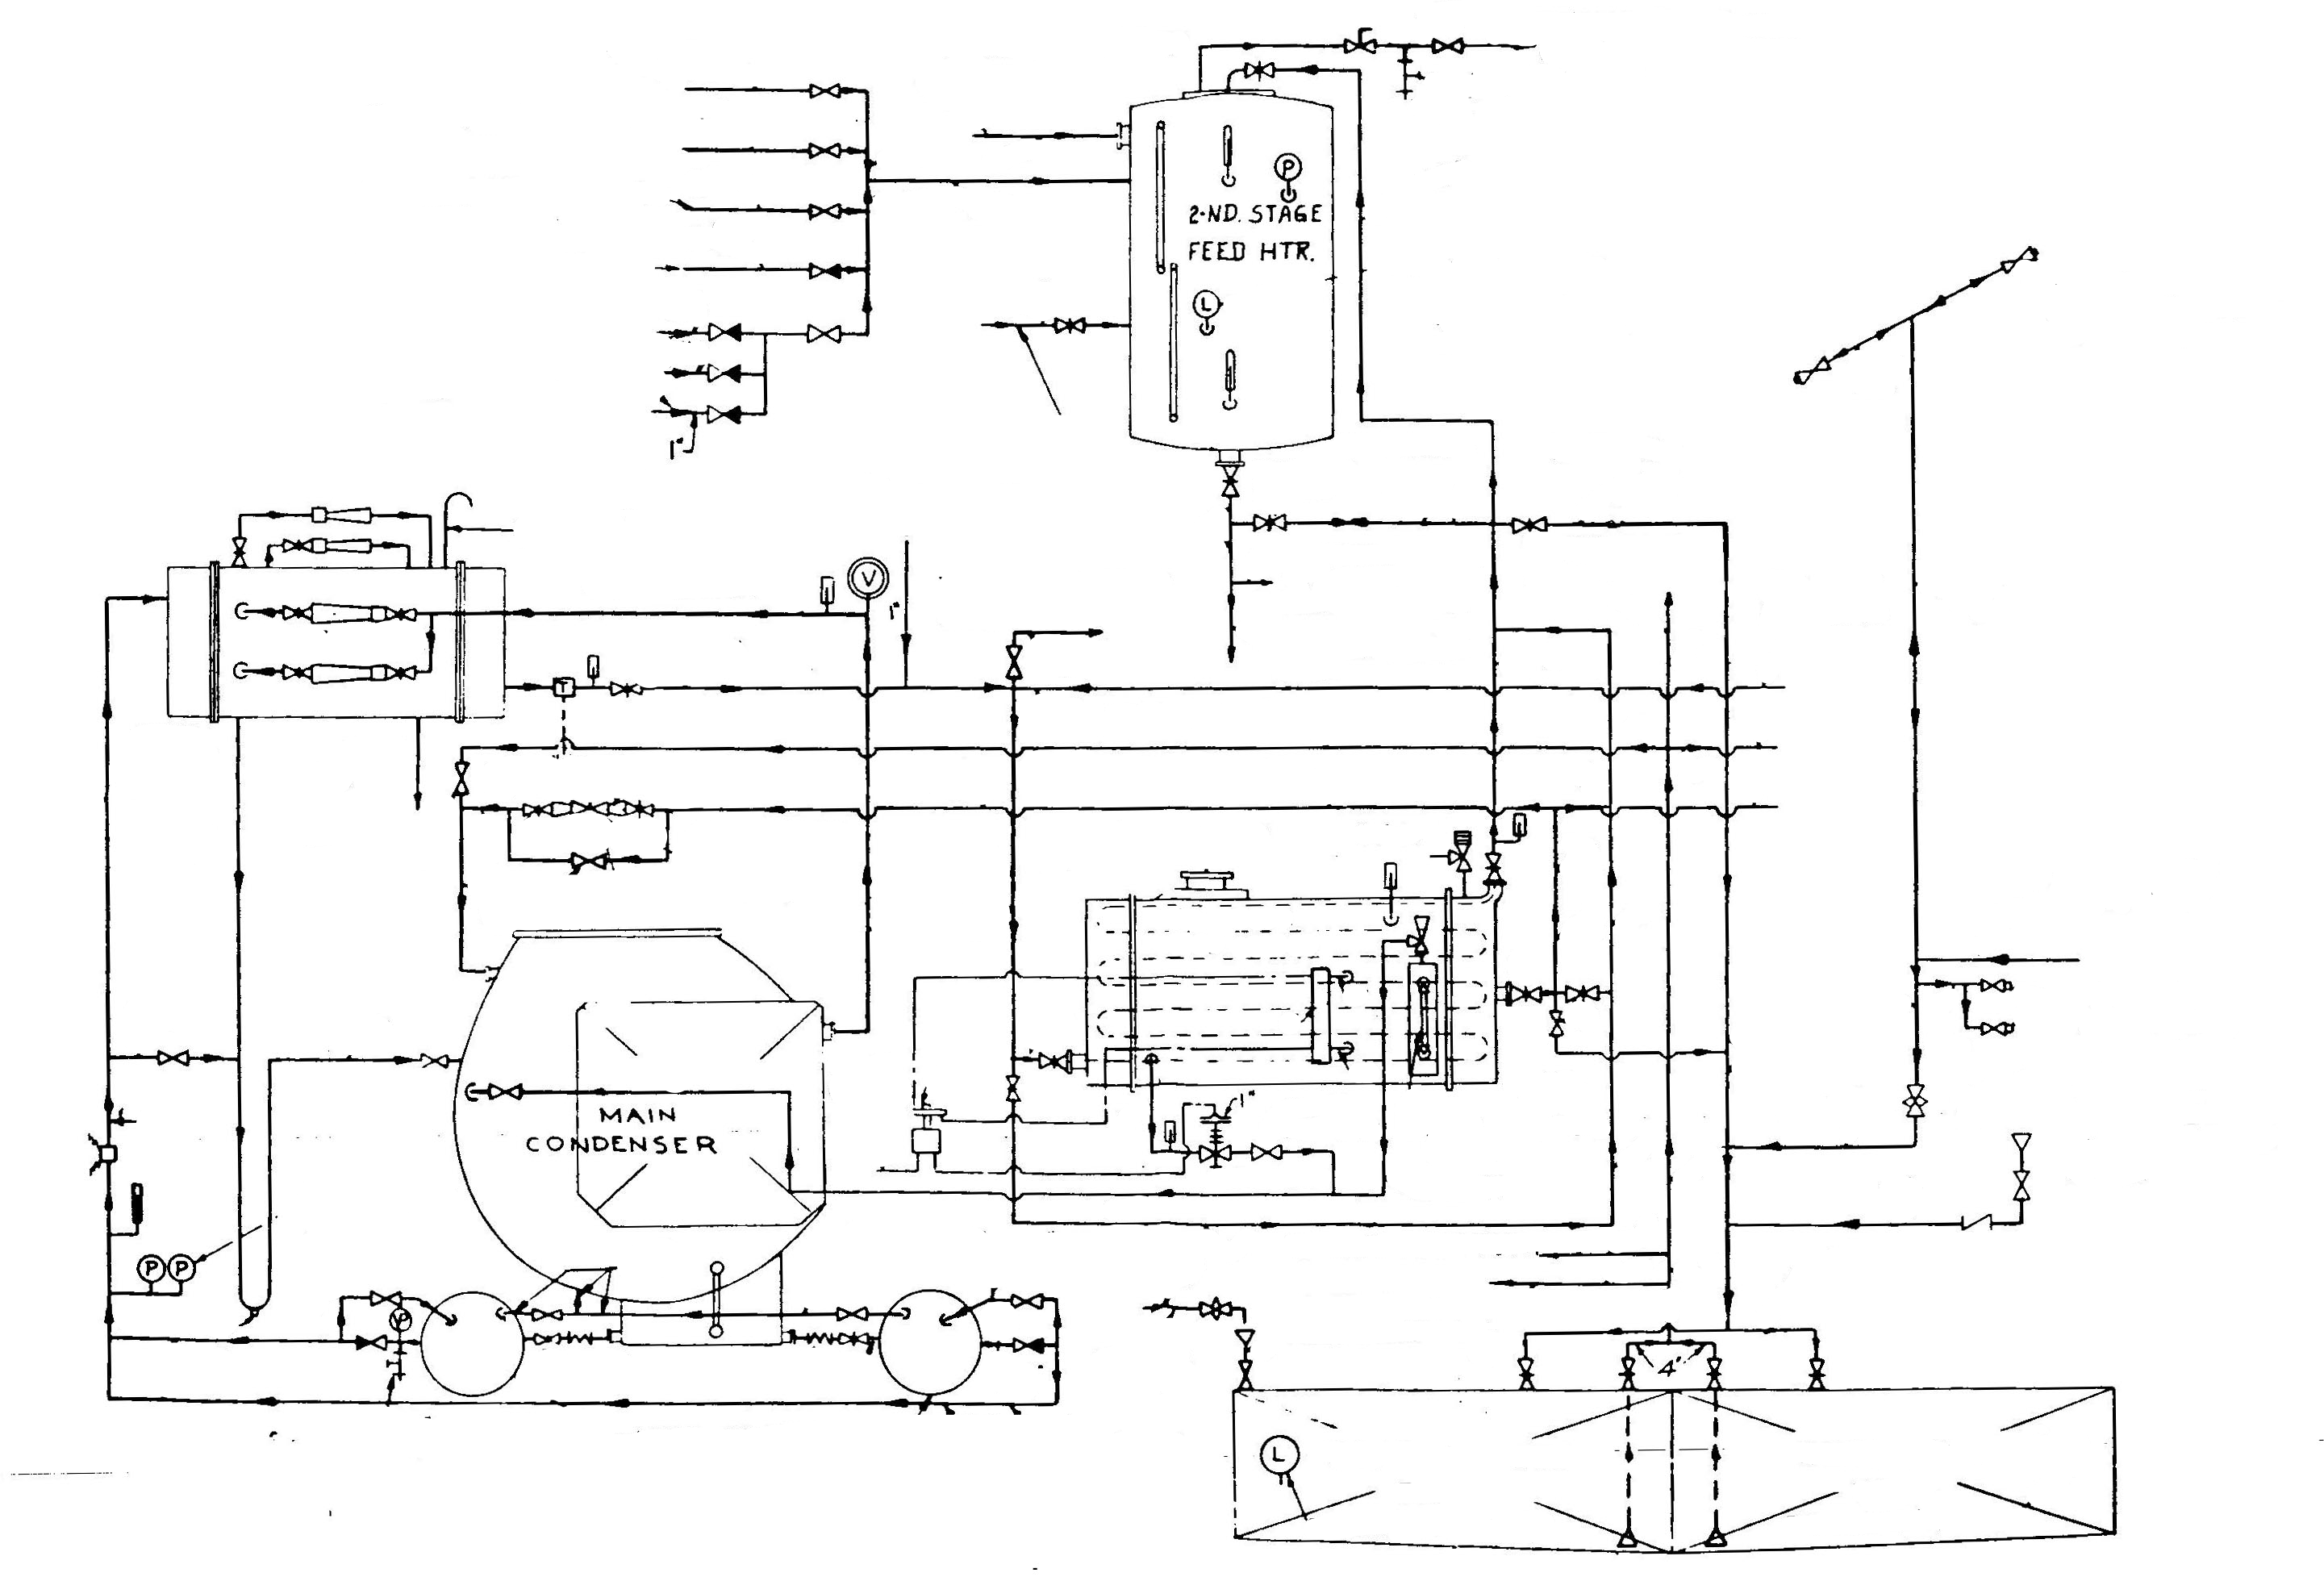 P
2·ND. STAGE
FEED HTR.
L
1"
V
1"
T
1"
MAIN
CONDENSER
P P
V
4"
L